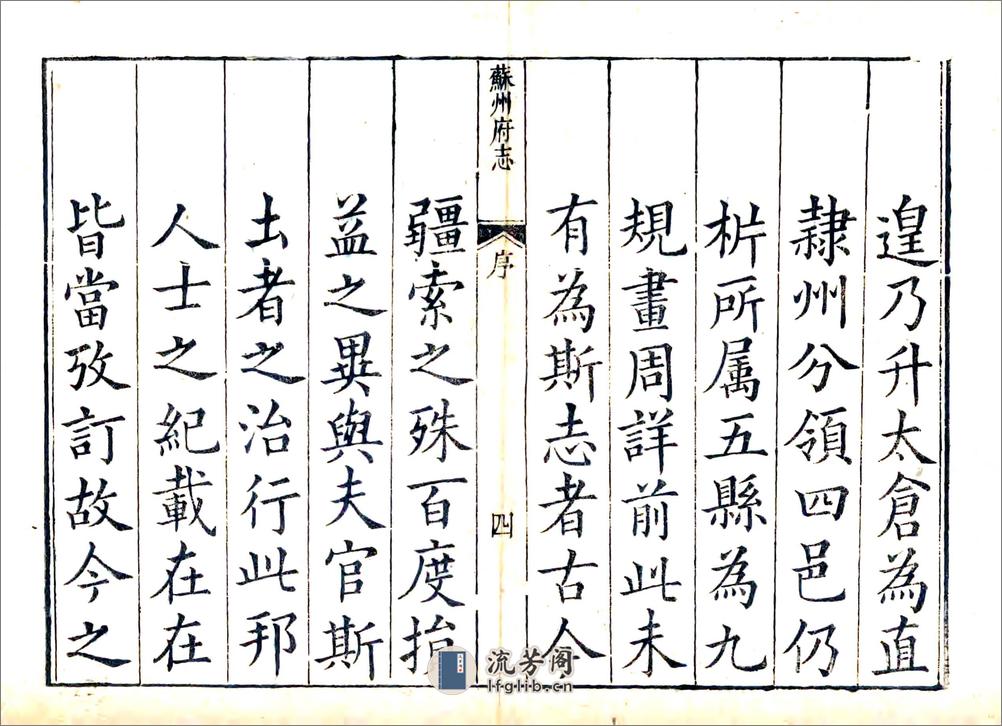 遑乃升太倉為直
隷州分領四邑仍
析所属五縣為九
規畫周詳前此未
有為斯志者古今
蘇州府志
序
四
疆索之殊百度損
益之異與夫官斯
土者之治行此邦
人士之紀載在在
皆當攷訂故今之
流芳阁
lfglib.cn